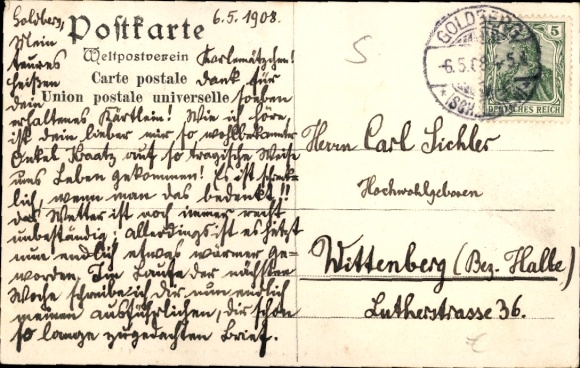 Goldberg, 6.5.1908.
Postkarte
Weltpostverein
Carte postale
Union postale universelle
Mein Karlemätzchen!
teures
heißen Dank für
dein soeben
erhaltenes Kärtlein! Wie ich höre,
ist dein lieber mir so wohlbekannter
Onkel Kraatz auf so tragische Weise
ums Leben gekommen! Es ist schreck-
lich, wenn man das bedenkt!!
Das Wetter ist noch immer recht
unbeständig; allerdings ist es jetzt
nun endlich etwas wärmer ge-
worden. Im Laufe der nächsten
Woche schreibe ich dir nun endlich
meinen ausführlichen, dir schon
so lange zugedachten Brief.
GOLDBERG
-6.5.08
(SCHL.)
5
DEUTSCHES REICH
Herrn Carl Sichler
Hochwohlgeboren
Wittenberg (Bez. Halle)
Lutherstrasse 36.